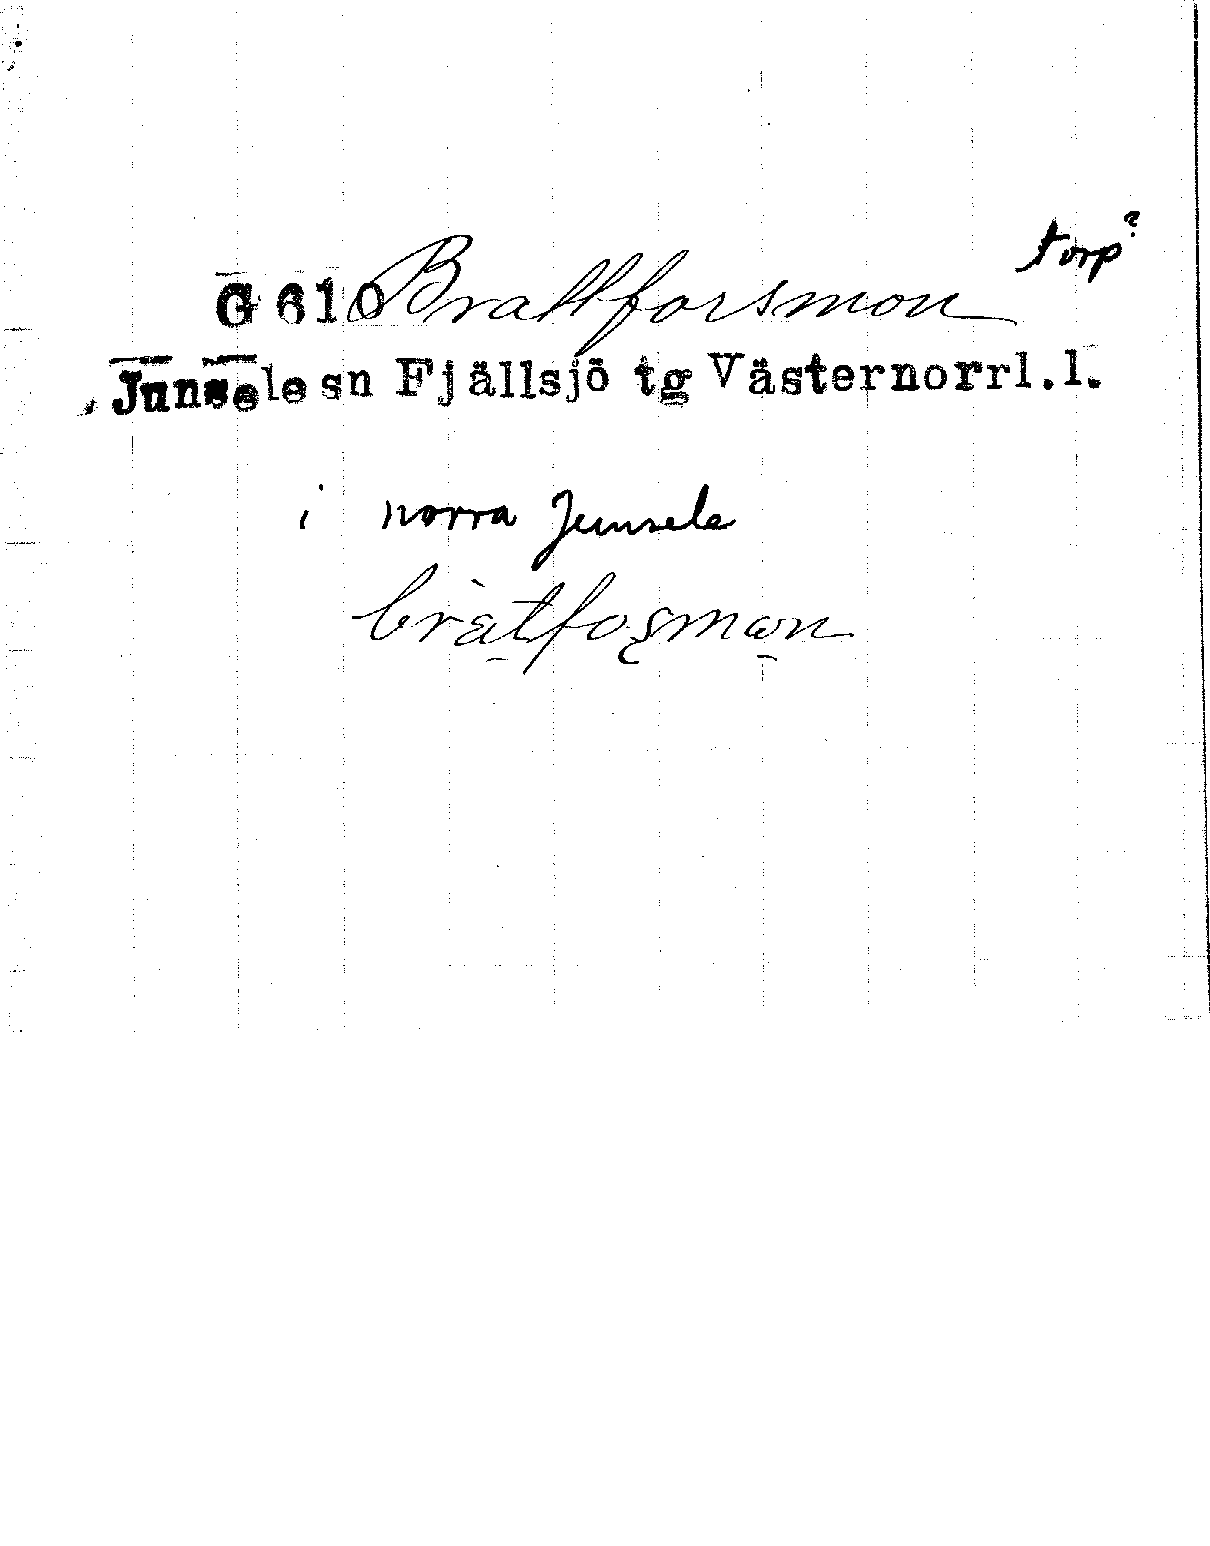 torp?
G 610 Brattforsmon
Junsele sn Fjällsjö tg Västernorrl.l.
i norra Junsele
bràtfoʂmɷn